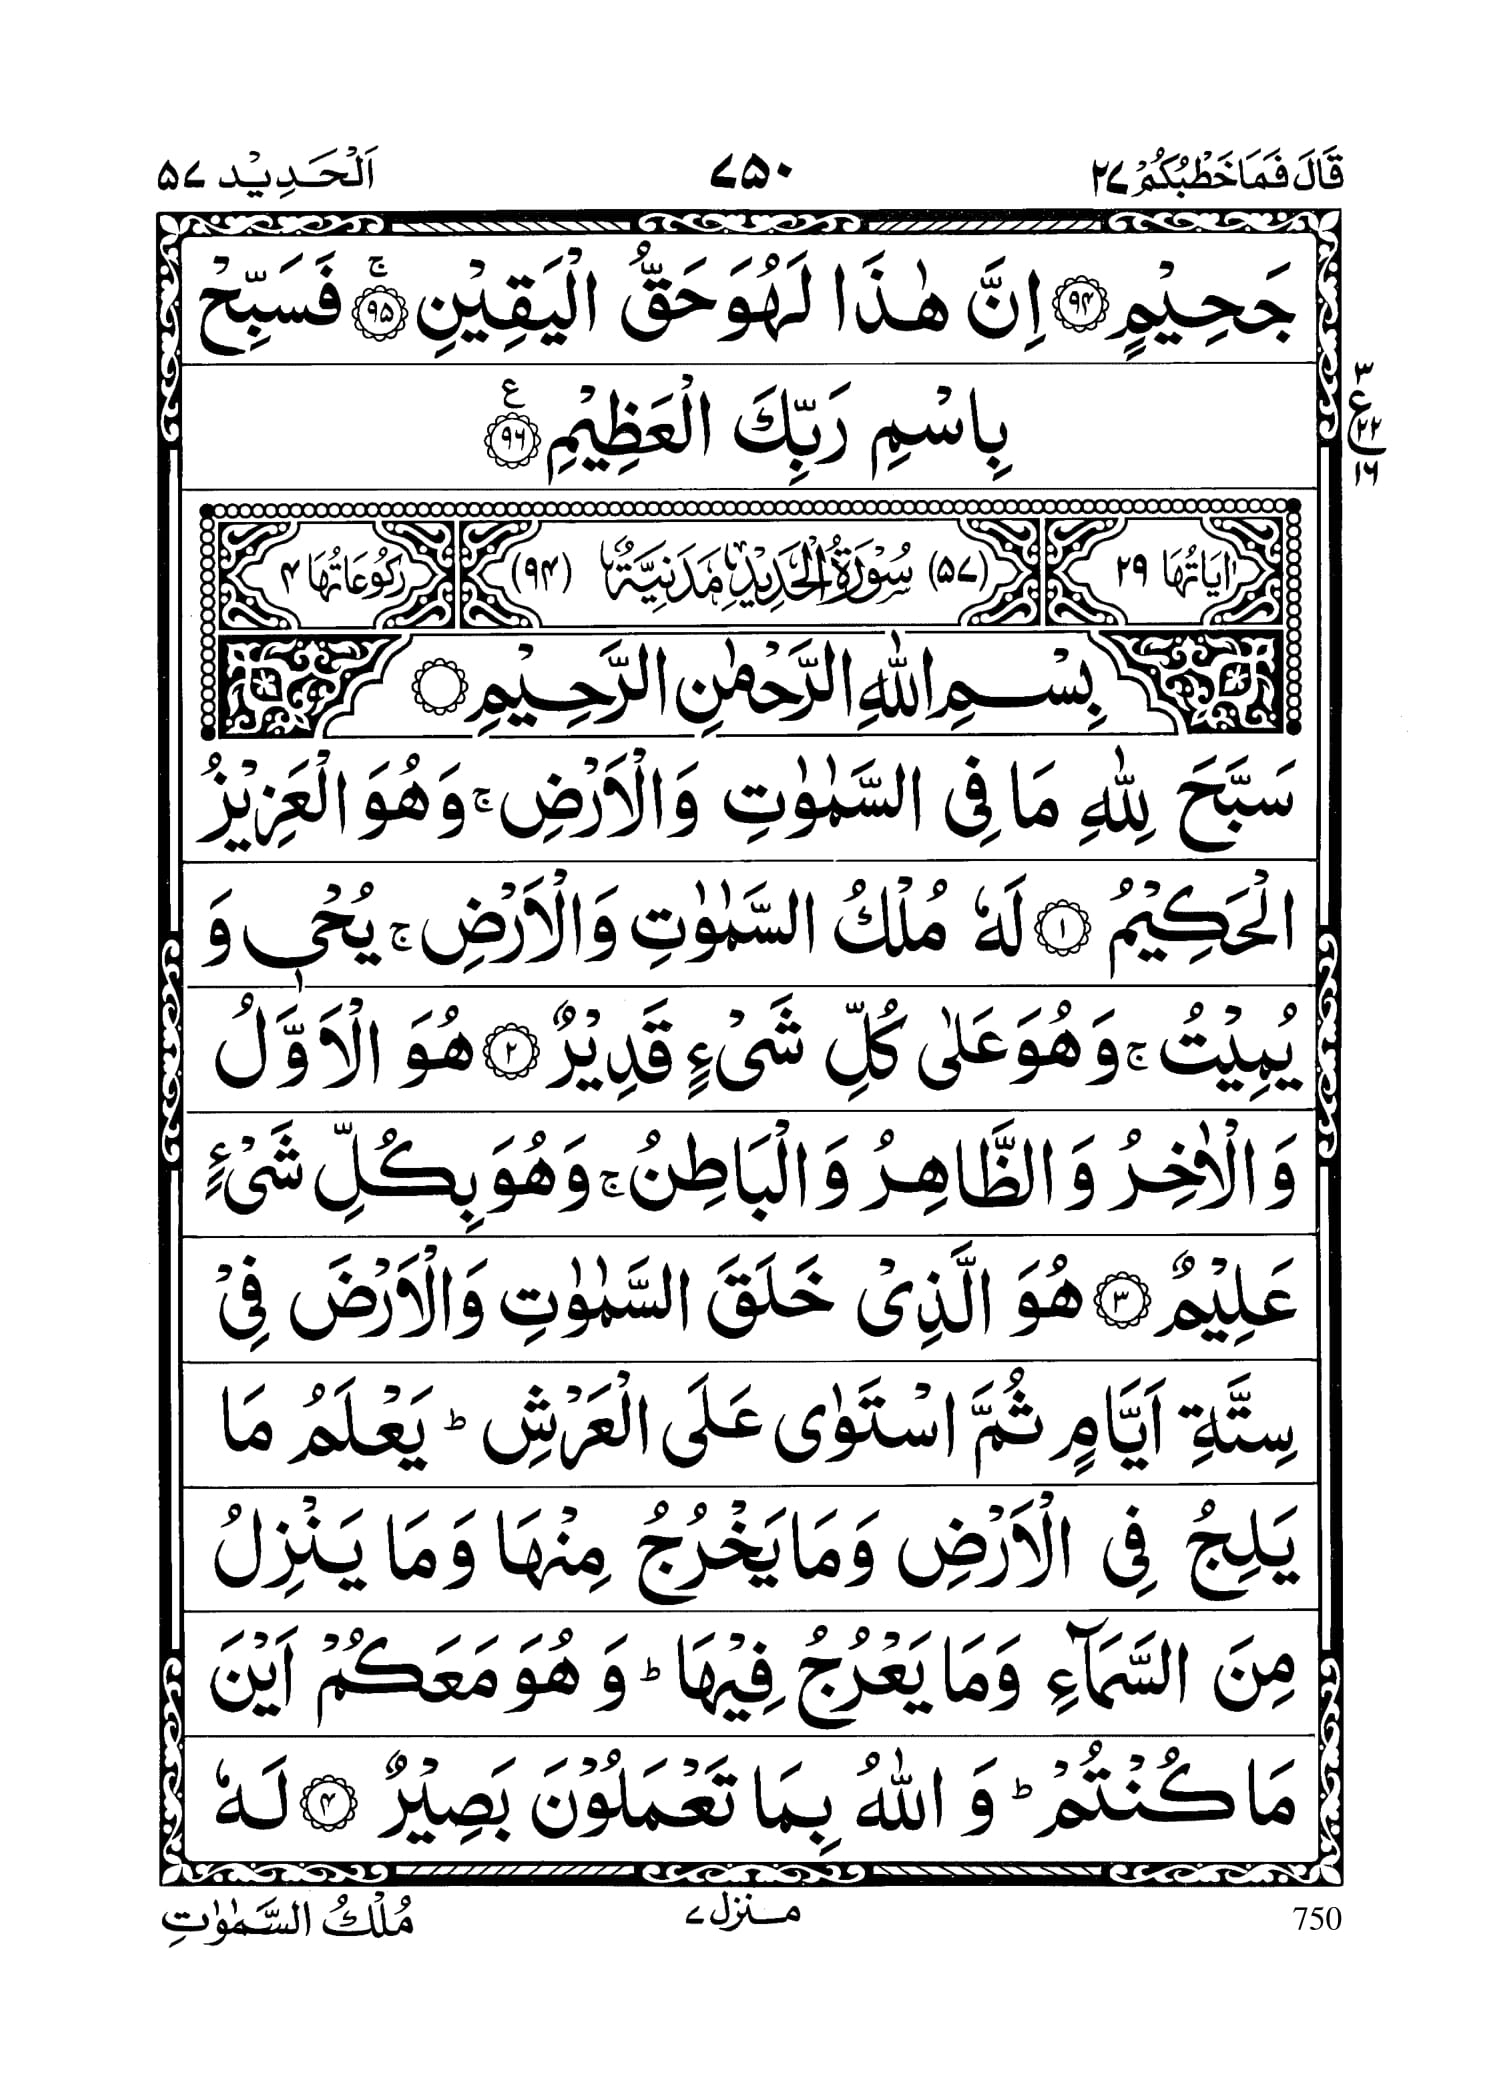 قَالَ فَمَا خَطْبُكُمْ ٢٧ ٧٥٠ اَلْحَدِيْد ٥٧
جَحِيْمٍ ﴿٩٤﴾ اِنَّ هٰذَا لَهُوَ حَقُّ الْيَقِيْنِ ۚ ﴿٩٥﴾ فَسَبِّحْ
بِاسْمِ رَبِّكَ الْعَظِيْمِ ﴿٩٦﴾ ع
٣
ع
٢٢
١٦
اٰيَاتُهَا ٢٩ (٥٧) سُوْرَةُ الْحَدِيْدِ مَدَنِيَّةٌ (٩٤) رُكُوْعَاتُهَا ٤
بِسْمِ اللّٰهِ الرَّحْمٰنِ الرَّحِيْمِ
سَبَّحَ لِلّٰهِ مَا فِى السَّمٰوٰتِ وَالْاَرْضِ ۚ وَهُوَ الْعَزِيْزُ
الْحَكِيْمُ ﴿١﴾ لَهٗ مُلْكُ السَّمٰوٰتِ وَالْاَرْضِ ۚ يُحْىٖ وَ
يُمِيْتُ ۚ وَهُوَ عَلٰى كُلِّ شَىْءٍ قَدِيْرٌ ﴿٢﴾ هُوَ الْاَوَّلُ
وَالْاٰخِرُ وَالظَّاهِرُ وَالْبَاطِنُ ۚ وَهُوَ بِكُلِّ شَىْءٍ
عَلِيْمٌ ﴿٣﴾ هُوَ الَّذِىْ خَلَقَ السَّمٰوٰتِ وَالْاَرْضَ فِىْ
سِتَّةِ اَيَّامٍ ثُمَّ اسْتَوٰى عَلَى الْعَرْشِ ؕ يَعْلَمُ مَا
يَلِجُ فِى الْاَرْضِ وَمَا يَخْرُجُ مِنْهَا وَمَا يَنْزِلُ
مِنَ السَّمَآءِ وَمَا يَعْرُجُ فِيْهَا ؕ وَهُوَ مَعَكُمْ اَيْنَ
مَا كُنْتُمْ ؕ وَاللّٰهُ بِمَا تَعْمَلُوْنَ بَصِيْرٌ ﴿٤﴾ لَهٗ
750 منزل ٧ مُلْكُ السَّمٰوٰتِ